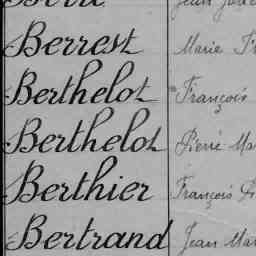 Berrest Marie
Berthelot François
Berthelot Pierre Mar
Berthier François
Bertrand Jean Mar